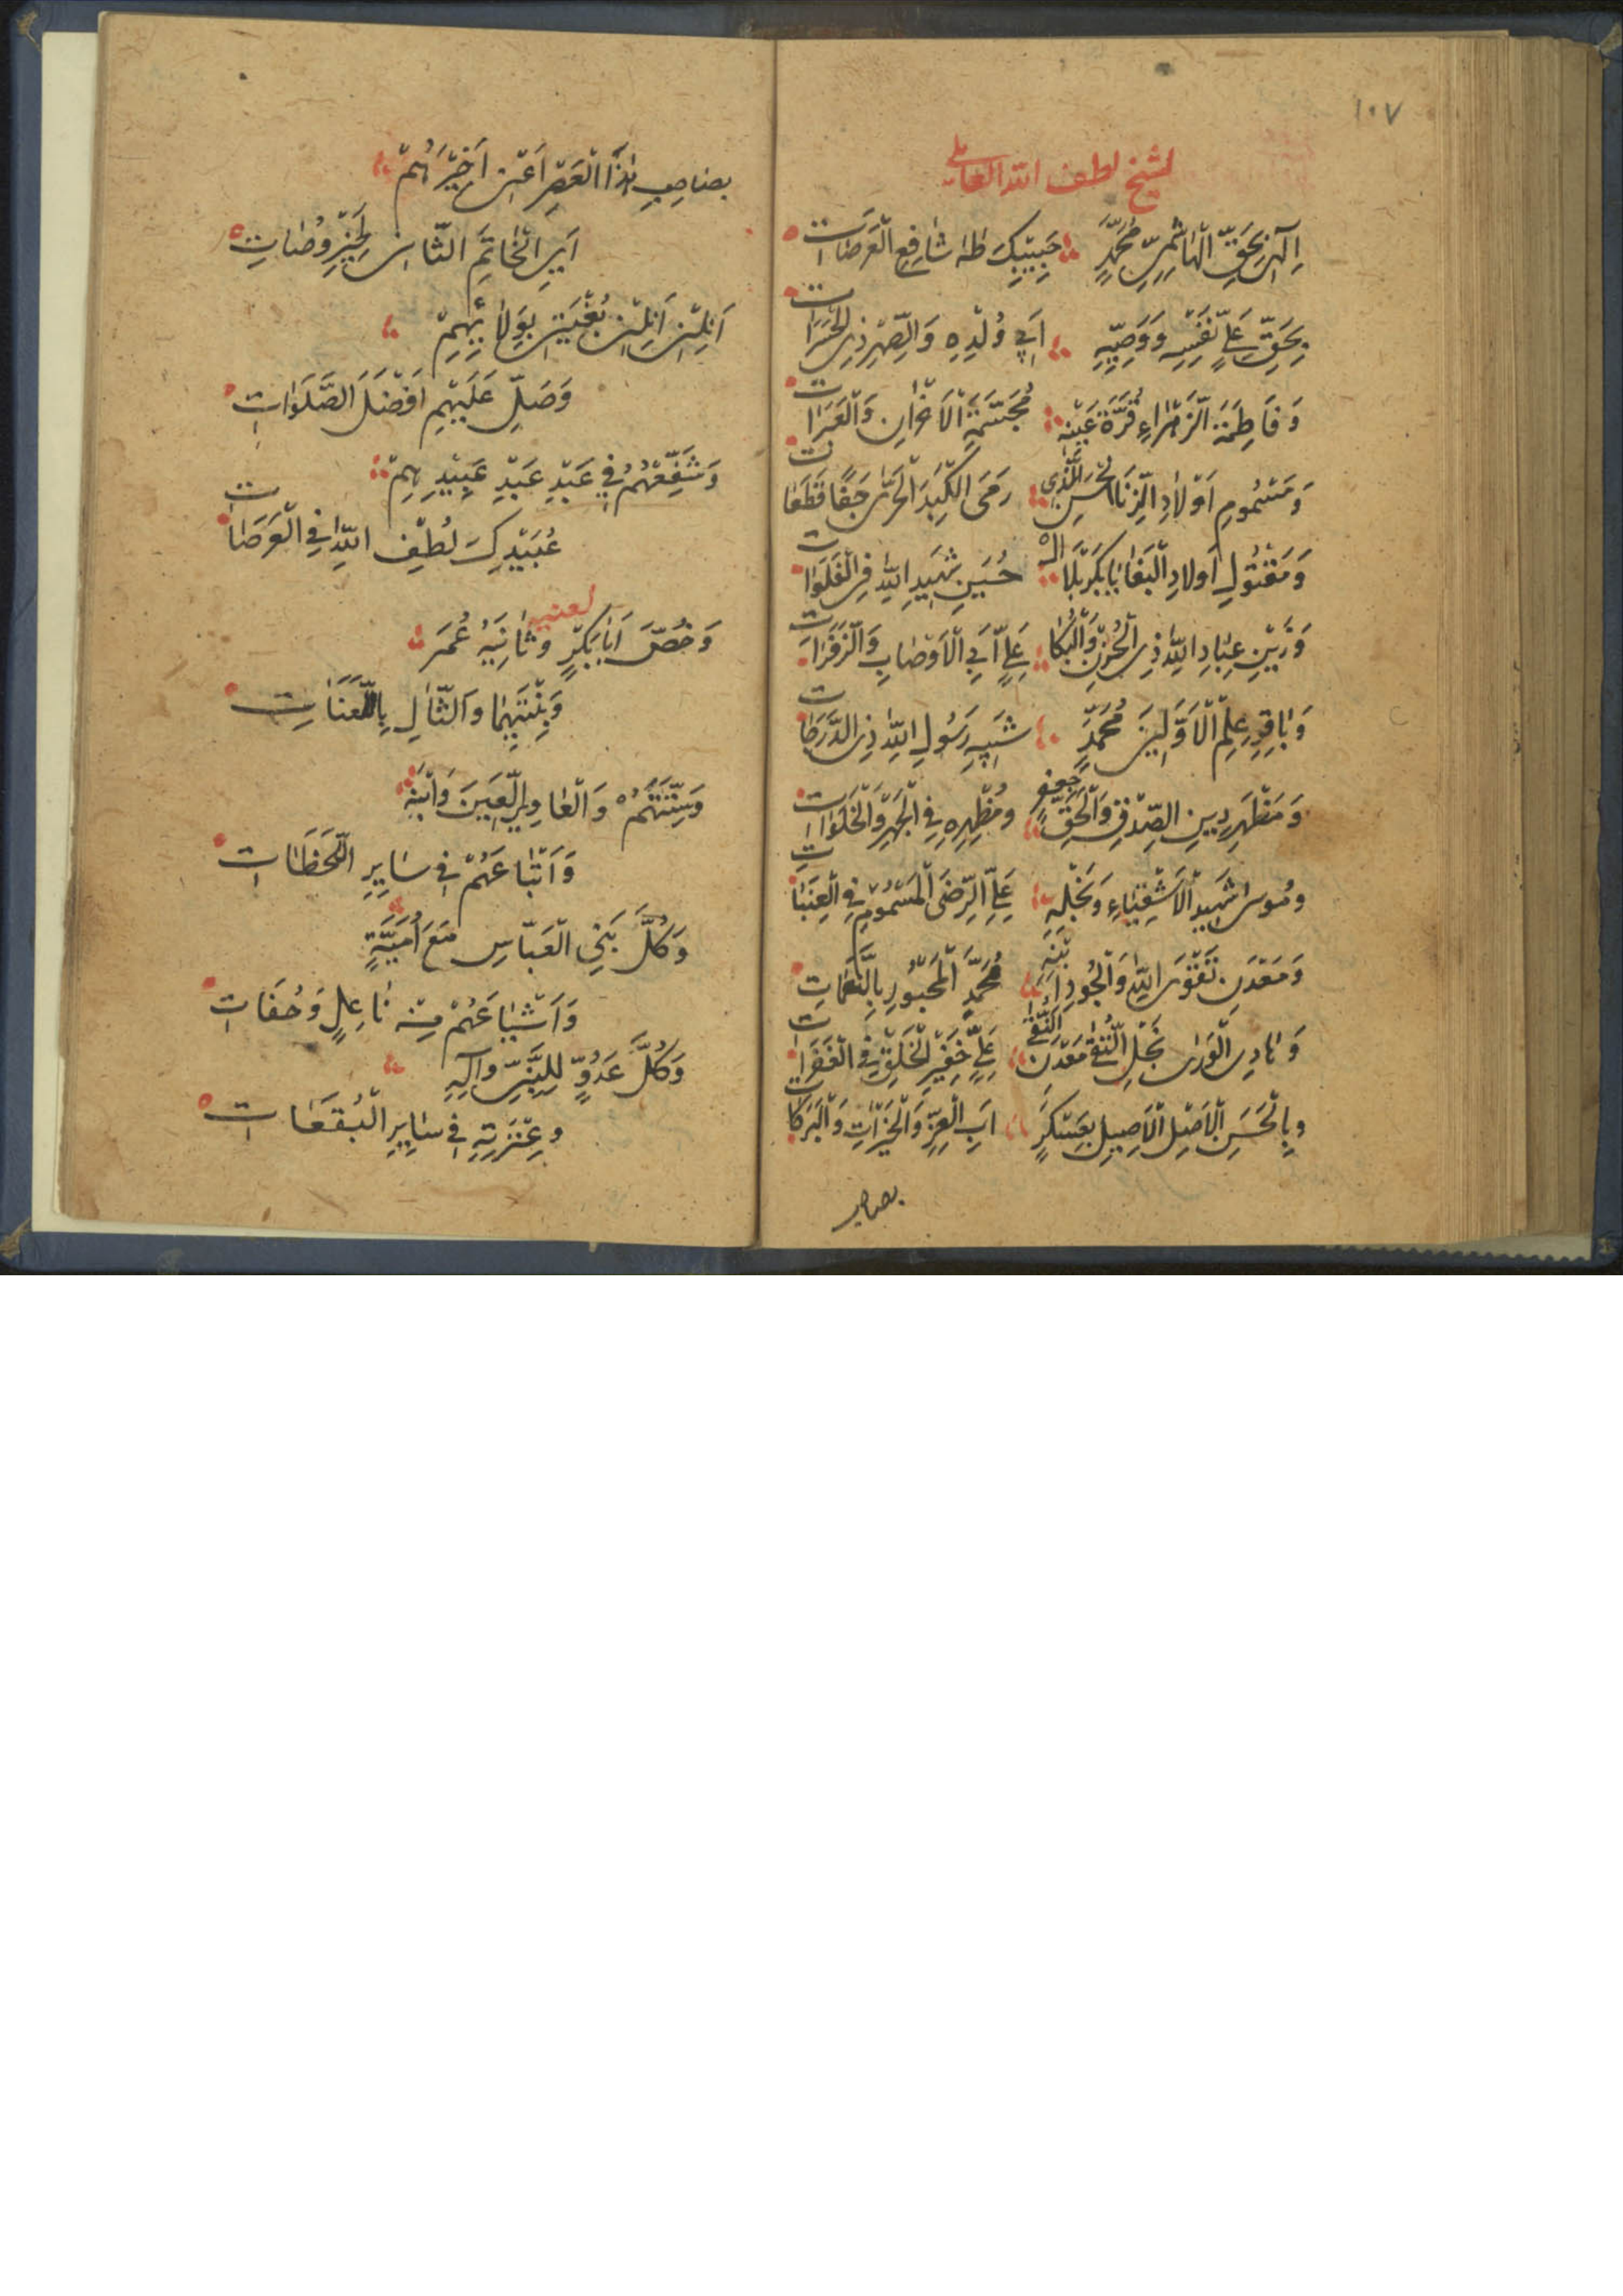 ١٠٧
لشيخ لطف الله العاملي
اِلٰهِي بِحَقِّ الْهَاشِمِيِّ مُحَمَّدٍ حَبِيْبِكَ طٰهٰ شَافِعِ الْعَرَصَات
بِحَقِّ عَلِيٍّ نَفْسِهِ وَوَصِيِّهِ اَبِي وُلْدِهِ وَالصِّهْرِ ذِي
وَفَاطِمَةَ الزَّهْرَاءِ قُرَّةِ عَيْنِهِ الْاَحْزانِ وَالْعَبَرَات
وَمَسْمُومِ اَوْلَادِ الزِّنَا الْحَسَنِ الَّذِي رَمَى الْكَبِدَ الْحَرّٰى قَطَعَات
وَمَقْتُولِ اَولادِ الْبَغَايَا بِكَرْبَلَا الْ حُسَيْنِ شَهِيدِ اللهِ فِي الْفَلَوَات
وَزَيْنِ عِبَادِ اللهِ ذِي الْحُزْنِ وَالْبُكَا عَلِيٍّ اَبِي الْاَوْصَابِ وَالزَّفَرَات
وَبَاقِرِ عِلْمِ الْاَوَّلِينَ مُحَمَّدٍ شَبِيهِ رَسُولِ اللهِ ذِي الدَّرَجَات
وَمَظْهَرِ دِينِ الصِّدْقِ وَالْحَقِّ جَعْفَرٍ وَمُظْهِرِهِ فِي الْجَهْرِ وَالْخَلَوَات
وَمُوسٰى شَهِيدِ الْاَشْقِيَاءِ وَنَجْلِهِ عَلِيِّ الرِّضَى الْمَسْمُومِ فِي الْعِنَبَات
وَمَعْدَنِ تَقْوَى اللهِ وَالْجُودِ ابْنِهِ مُحَمَّدٍ الْمَحْبُورِ
وَهَادِي الْوَرٰى نَجْلِ التُّقٰى مَعْدَنِ النُّقٰى عَلِيٍّ خَفِيْرِ الْخَلْقِ فِي
وَبِالْحَسَنِ الْاَصْلِ الْاَصِيلِ بِعَسْكَرٍ اَبِ الْعِزِّ وَالْخَيْرَاتِ وَالْبَرَكَات
بصاحب
بِصَاحِبِ هٰذَا الْعَصْرِ اَعْنِي اَخِيْرَهُمْ
اَبِي الْخَاتَمِ الثَّانِي لِخَيْرِ وُصَاتِ
اَنِلْنِي اَنِلْنِي بُغْيَتِي بِوَلَائِهِمْ
وَصَلِّ عَلَيْهِمِ اَفْضَلَ الصَّلَوَات
وَشَفِّعْهُمُ فِي عَبْدِ عَبْدِ عَبِيْدِهِمْ
عُبَيْدِكَ لُطْفِ اللهِ فِي الْعَرَصَات
وَخُصَّ اَبَا بَكْرٍ وَثَانِيْهُ عُمَرَ
لعنهم
وَبِنْتَيْهِمَا وَالثَّالِ بِاللَّعَنَاتِ
وَالْعَاوِي اللَّعِينَ وَابْنَهُ
وَاَتْبَاعَهُمْ فِي سَايِرِ اللَّحَظَات
وَكُلَّ بَنِي الْعَبَّاسِ مَعَ اُمَيَّةٍ
وَاَشْيَاعَهُمْ مِنْ نَاعِلٍ وَحُفَات
وَكُلَّ عَدُوٍّ لِلنَّبِيِّ وَآلِهِ
وَعِتْرَتِهِ فِي سَايِرِ الْبُقَعَات